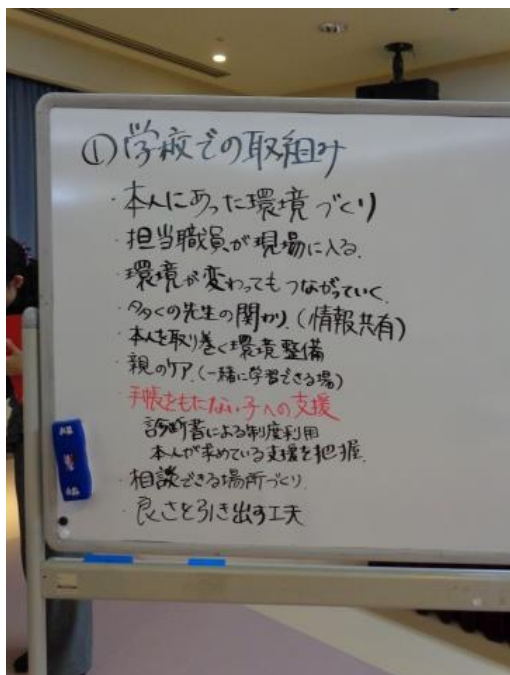 ①学校での取組み
・本人にあった環境づくり
・担当職員が現場に入る.
・環境が変わってもつながっていく.
・多くの先生の関わり.(情報共有)
・本人を取り巻く環境整備
・親のケア.(一緒に学習できる場)
手帳をもたない子への支援
診断書による制度利用
本人が求めている支援を把握.
・相談できる場所づくり.
・良さを引き出す工夫